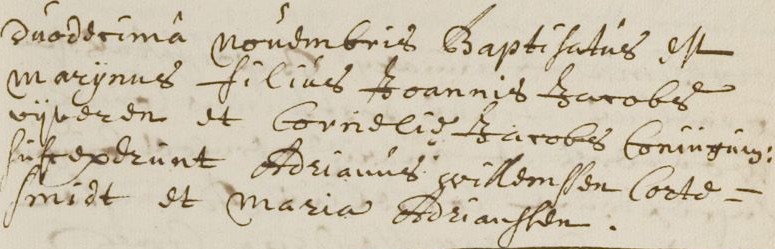 duodecima novembris Baptisatus est
marijnus filius Joannis Jacobs
vijveren et Cornelie Jacobs Coniugum:
susceperunt Adrianus willemssen Corte=
smidt et maria Adrianssen.